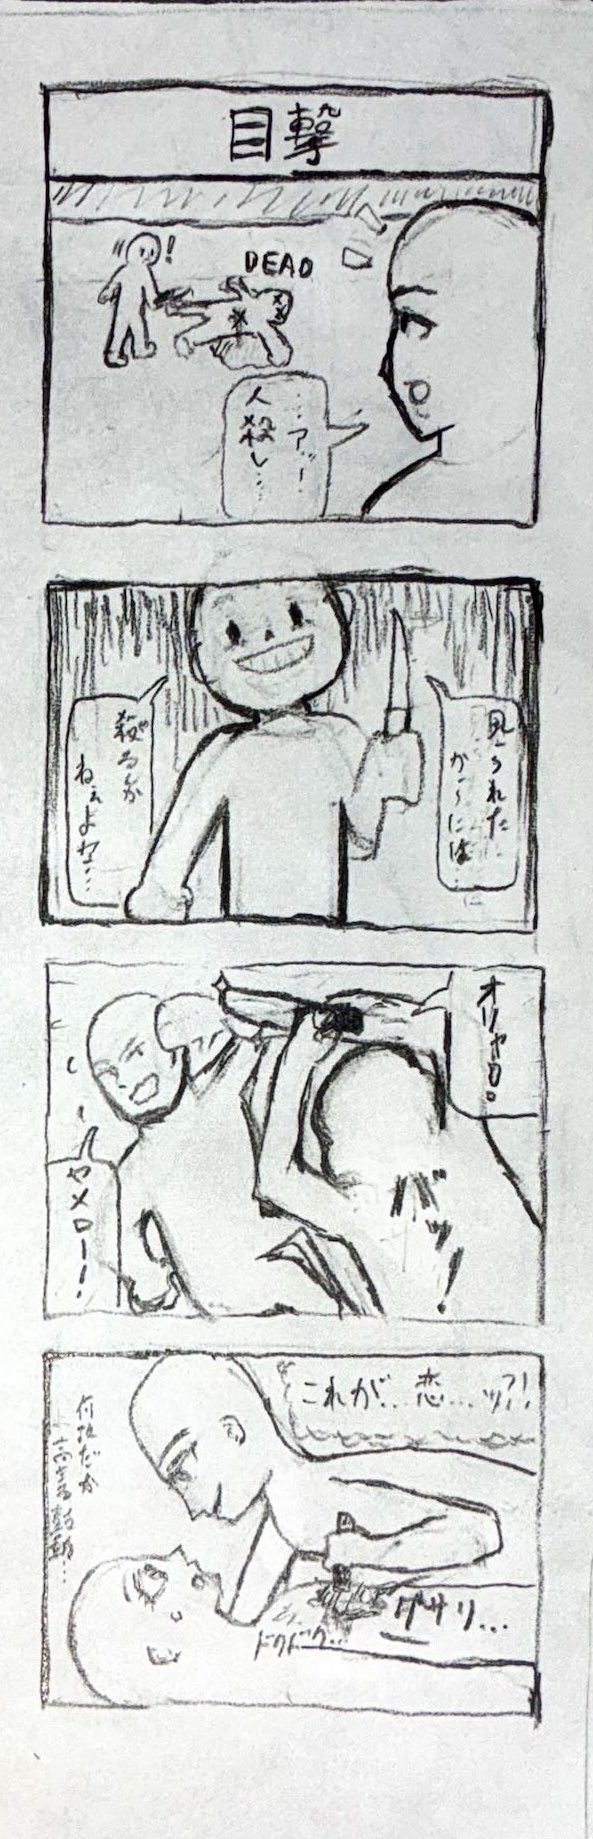 目撃
DEAD
!
…アッ…
人殺し…
見られた
からには…
殺るしか
ねぇよな…
オリャアッ。
ヤメロー!
バッ!
これが…恋…ッ?!
何故だか
高まる鼓動…
グサリ…
ドクドク…